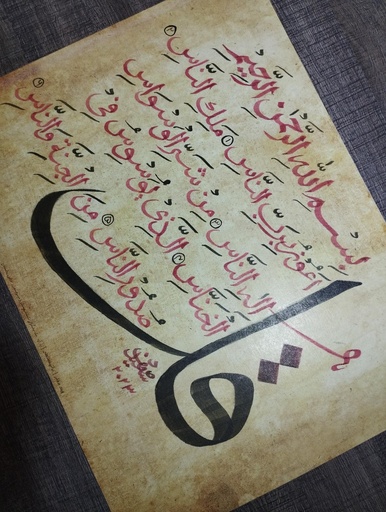 بِسْمِ اللَّهِ الرَّحْمَنِ الرَّحِيْمِ
قُلْ أَعُوْذُ بِرَبِّ النَّاسِ ١ مَلِكِ النَّاسِ ٢
إِلَهِ النَّاسِ ٣ مِنْ شَرِّ الْوَسْوَاسِ
الْخَنَّاسِ ٤ الَّذِيْ يُوَسْوِسُ فِيْ
صُدُوْرِ النَّاسِ ٥ مِنَ الْجِنَّةِ وَالنَّاسِ ٦
٢٠٢٣